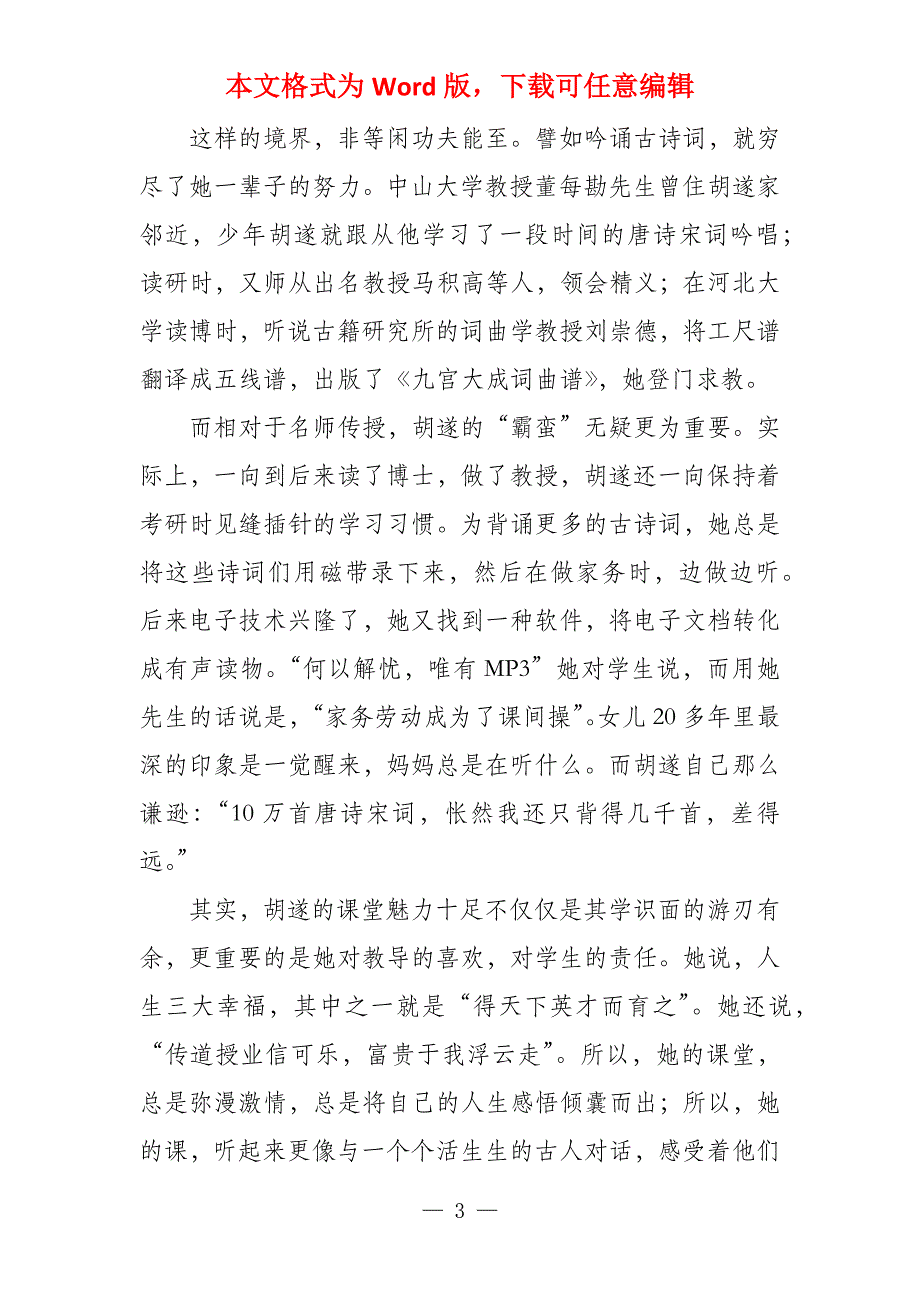 本文格式为 Word 版，下载可任意编辑
这样的境界，非等闲功夫能至。譬如吟诵古诗词，就穷
尽了她一辈子的努力。中山大学教授董每勘先生曾住胡遂家
邻近，少年胡遂就跟从他学习了一段时间的唐诗宋词吟唱；
读研时，又师从出名教授马积高等人，领会精义；在河北大
学读博时，听说古籍研究所的词曲学教授刘崇德，将工尺谱
翻译成五线谱，出版了《九宫大成词曲谱》，她登门求教。
而相对于名师传授，胡遂的“霸蛮”无疑更为重要。实
际上，一向到后来读了博士，做了教授，胡遂还一向保持着
考研时见缝插针的学习习惯。为背诵更多的古诗词，她总是
将这些诗词们用磁带录下来，然后在做家务时，边做边听。
后来电子技术兴隆了，她又找到一种软件，将电子文档转化
成有声读物。“何以解忧，唯有 MP3”她对学生说，而用她
先生的话说是，“家务劳动成为了课间操”。女儿 20 多年里最
深的印象是一觉醒来，妈妈总是在听什么。而胡遂自己那么
谦逊：“10 万首唐诗宋词，怅然我还只背得几千首，差得
远。”
其实，胡遂的课堂魅力十足不仅仅是其学识面的游刃有
余，更重要的是她对教导的喜欢，对学生的责任。她说，人
生三大幸福，其中之一就是“得天下英才而育之”。她还说，
“传道授业信可乐，富贵于我浮云走”。所以，她的课堂，
总是弥漫激情，总是将自己的人生感悟倾囊而出；所以，她
的课，听起来更像与一个个活生生的古人对话，感受着他们
— 3 —